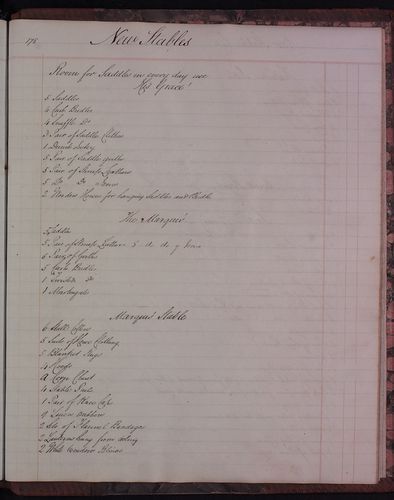 178 New Stables
Room for Saddles in every day use
His Grace's
5 Saddles
6 Curb Bridles
4 Snaffle Do
3 Pair of Saddle Cloths
5 Pair of Saddle Girths
5 Pair of Stirrup Leathers
5 Do Do Irons
2 Wooden Horses for hanging Saddles and Bridles
The Marquis
5 Saddles
5 Pair of Stirrup Leathers 5 do do Irons
6 Pair of Girths
5 Curb Bridles
1 Twisted do
1 Martingale
Marquis Stable
6 Stall Collars
5 Suits of Horse Clothing
5 Blanket Rugs
4 Hoods
A Corn Chest
4 Stable Pails
1 Pair of Knee Caps
9 Linen
2 Sets of Flannel Bandages
2 Lanterns hung from ceiling
2 Window Blinds